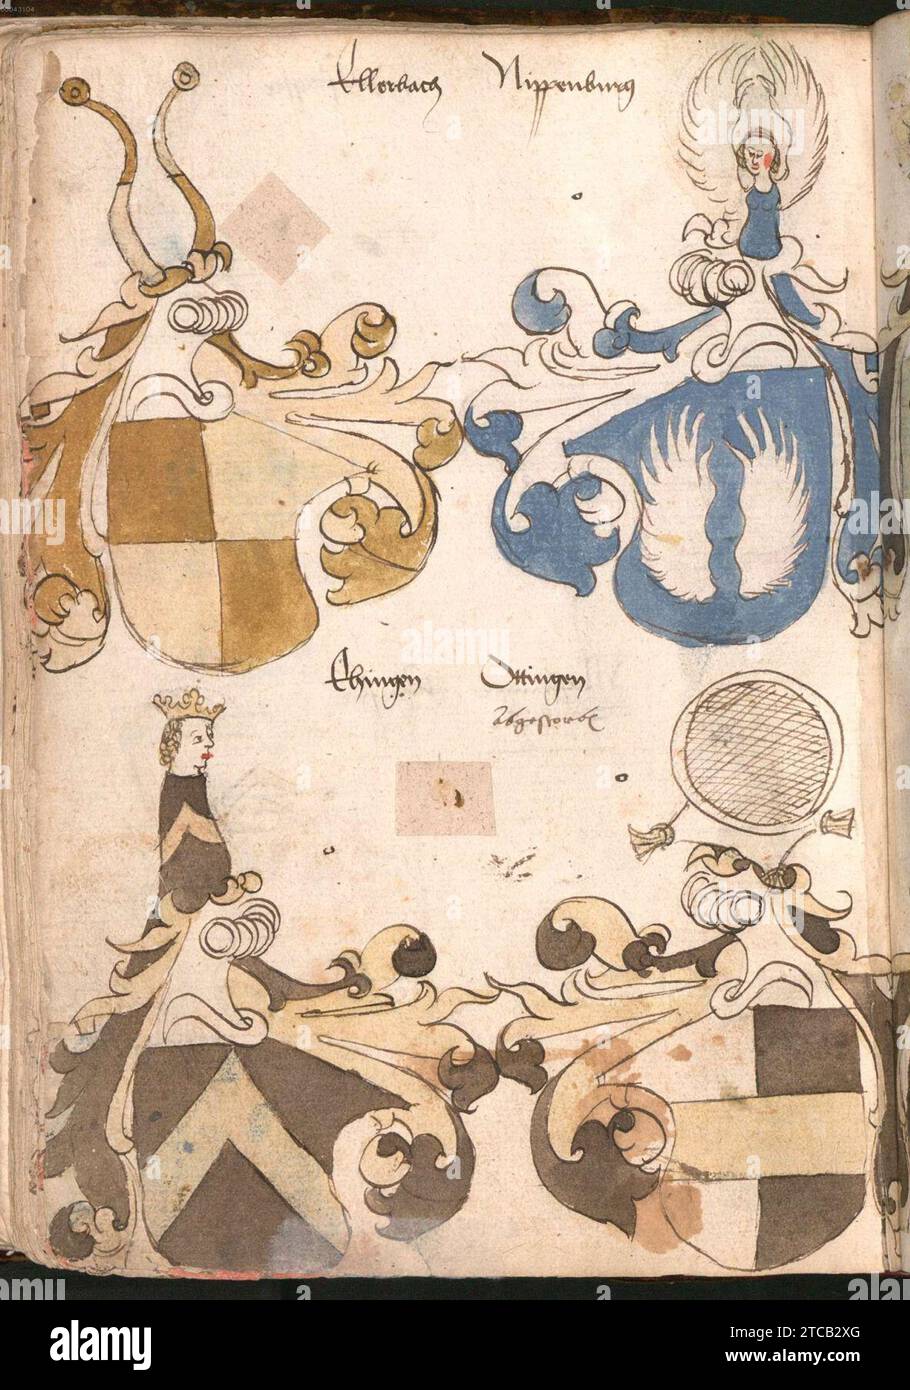 Ellerbach Nippenburg
Ehingen Ottingen
abgestorbe
alamy
Image ID: 2TCB2XG
www.alamy.com